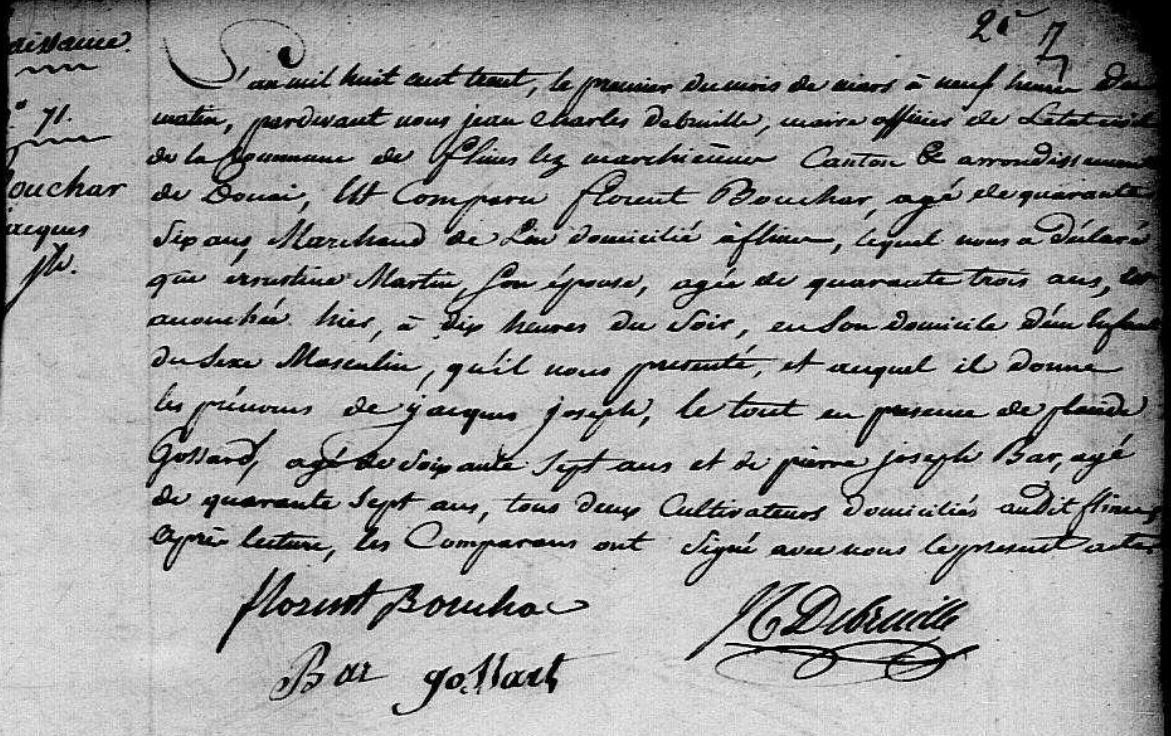 2e 7
Naissance.
n° 71.
Bouchar
jacques
jh.
L'an mil huit cent trent, le premier du mois de mars à neuf heures du
matin, pardevant nous jean Charles debruille, maire officier de L'etat civil
de la Commune de flines lez marchiennes Canton & arrondissement
de Douai, Est Comparu florent Bouchar, agé de quarante
Six ans, Marchand de Lin domicilié à flines, lequel nous a déclaré
que ernestine Martin, Son épouse, agée de quarante trois ans, est
accouchée hier, à dix heures du Soir, en Son domicile d'un Enfant
du Sexe Masculin, qu'il nous presenté, et auquel il donne
les prénoms de jacques joseph, le tout en presence de
Gossard, agé de Soixante Sept ans et de pierre joseph Bar, agé
de quarante Sept ans, tous deux Cultivateurs domiciliés audit flines,
Après lecture, les Comparans ont Signé avec nous le present acte.
florent Bouchar
JC Debruille
Bar gossart